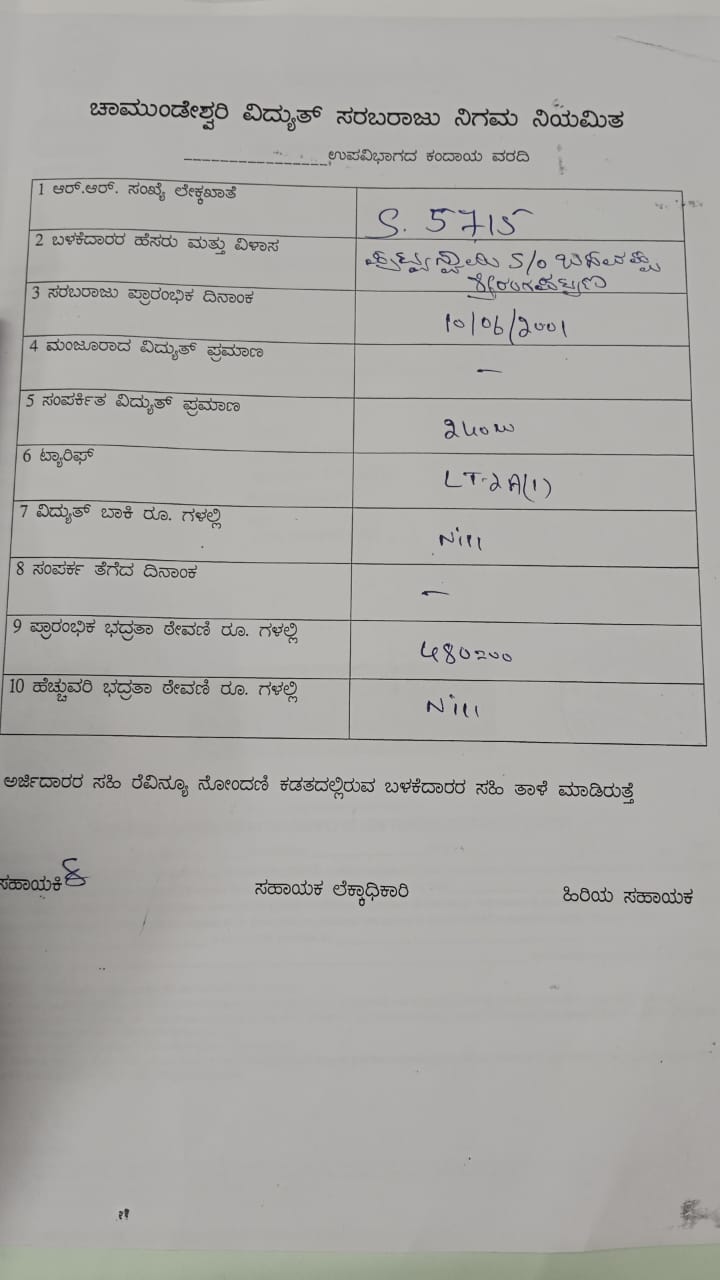 ಚಾಮುಂಡೇಶ್ವರಿ ವಿದ್ಯುತ್ ಸರಬರಾಜು ನಿಗಮ ನಿಯಮಿತ
________________,ಉಪವಿಭಾಗದ ಕಂದಾಯ ವರದಿ
1 ಆರ್.ಆರ್. ಸಂಖ್ಯೆ ಲೇಕ್ಕಖಾತೆ
S. 5715
2 ಬಳಕೆದಾರರ ಹೆಸರು ಮತ್ತು ವಿಳಾಸ
ಪುಟ್ಟಸ್ವಾಮಿ S/o
ಶ್ರೀರಂಗಪಟ್ಟಣ
3 ಸರಬರಾಜು ಪ್ರಾರಂಭಿಕ ದಿನಾಂಕ
10/06/2001
4 ಮಂಜೂರಾದ ವಿದ್ಯುತ್ ಪ್ರಮಾಣ
–
5 ಸಂಪರ್ಕಿತ ವಿದ್ಯುತ್ ಪ್ರಮಾಣ
240w
6 ಟ್ಯಾರಿಫ್
LT-2A(1)
7 ವಿದ್ಯುತ್ ಬಾಕಿ ರೂ. ಗಳಲ್ಲಿ
Nill
8 ಸಂಪರ್ಕ ತೆಗೆದ ದಿನಾಂಕ
–
9 ಪ್ರಾರಂಭಿಕ ಭದ್ರತಾ ಠೇವಣಿ ರೂ. ಗಳಲ್ಲಿ
480=00
10 ಹೆಚ್ಚುವರಿ ಭದ್ರತಾ ಠೇವಣಿ ರೂ. ಗಳಲ್ಲಿ
Nill
ಅರ್ಜಿದಾರರ ಸಹಿ ರೆವಿನ್ಯೂ ನೋಂದಣಿ ಕಡತದಲ್ಲಿರುವ ಬಳಕೆದಾರರ ಸಹಿ ತಾಳೆ ಮಾಡಿರುತ್ತೆ
ಸಹಾಯಕಿ ಸಹಾಯಕ ಲೆಕ್ಕಾಧಿಕಾರಿ ಹಿರಿಯ ಸಹಾಯಕ